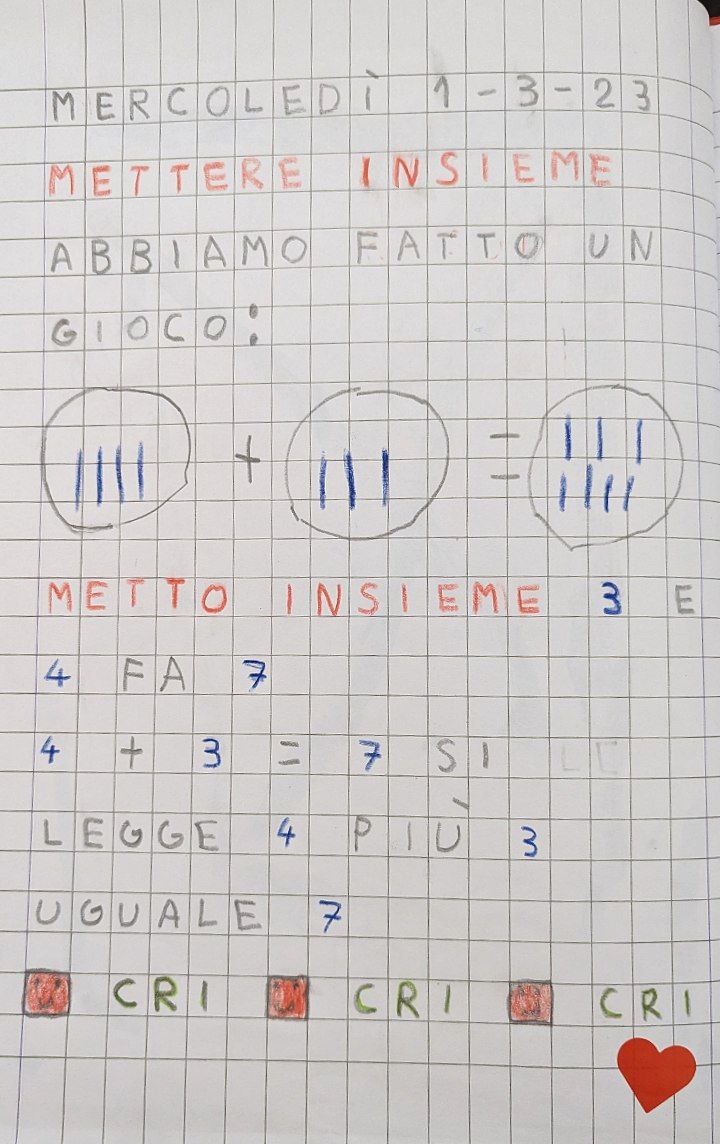 MERCOLEDÌ 1-3-23
METTERE INSIEME
ABBIAMO FATTO UN
GIOCO:
+ =
METTO INSIEME 3 E
4 FA 7
4 + 3 = 7 SI
LEGGE 4 PIÙ 3
UGUALE 7
CRI CRI CRI